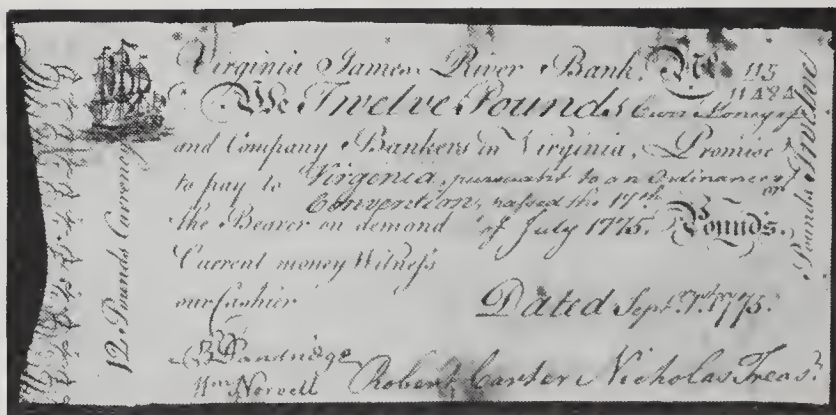 Virginia James River Bank. No 115
11484
We Twelve Pounds Curr Money of
and Company Bankers in Virginia, Promise
to pay to Virgenia, pursuant to an Ordinance of
Convention, passed the 17th or
the Bearer on demand of July 1775. Pounds.
Current money Witness
our Cashier
Dated Sept. 1st 1775.
B Dandridge
Wm Norvell Robert Carter Nicholas Treasr
12 Pounds Currency
Pounds Twelve